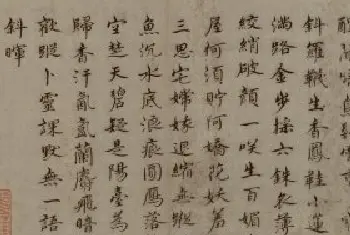 斜羅襪生香鳳鞋小蓮
滿路金步搖六銖衣薄
絞綃破顏一咲生百媚
屋何須貯阿嬌花妖
三思宅嫦娥退縮無蹤
魚沉水底浪痕圓鴈落
空楚天碧疑是陽臺為
歸香汗氤氳蘭麝飛暗
蹤卜靈課默無一語
斜暉